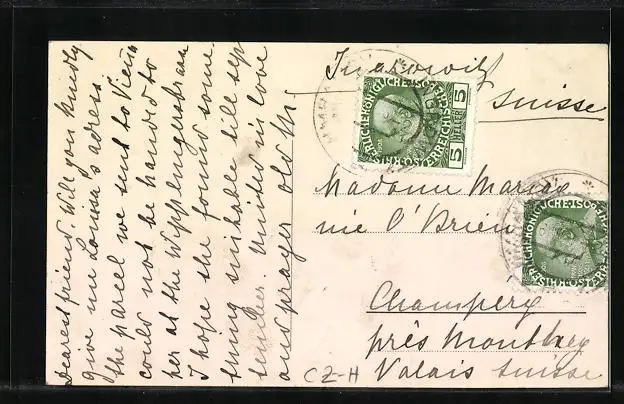 Dearest friend. Will you kindly
give me Louisa's adress
the parcel we sent to Vienna
could not be handed to
her at the Wipplingerstrasse
I hope she found some-
thing suitable till sep-
tember. United in love
and prayer old M.
Suisse
Madame Marie
née O'Brien
Champery
près Monthey
Valais Suisse
CZ-H
KAISERLICHE KÖNIGLICHE ÖSTERREICHISCHE POST
5 HELLER 5
1908